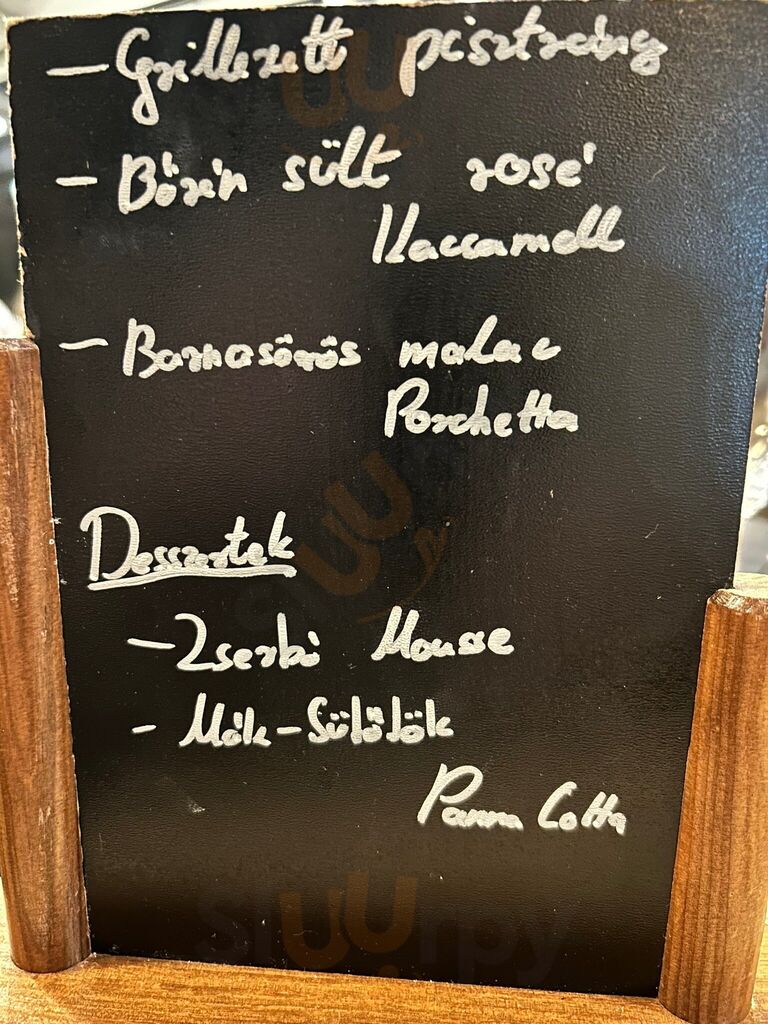 - Grillezett pisztráng
- Bőrén sült rosé
Kacsamell
- Barnasörös malac
Porchetta
Desszertek
- Zserbó Mousse
- Mák-Sütőtök
Panna Cotta
sluurpy